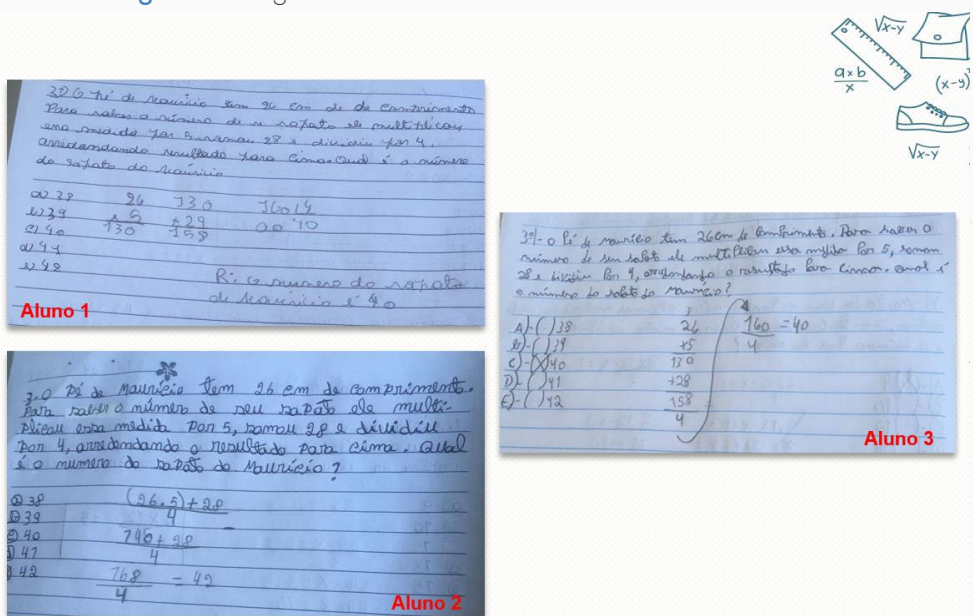 √x-y
a×b
x
(x-y)
√x-y
3º) O Pé de Maurício tem 26 cm de de comprimento
Para saber o número de se sapato ele multiplicou
essa medida por 5, somou 28 e dividiu por 4,
arredondando resultado para cima. Qual é o número
do sapato do Maurício
a) 38
b) 39
c) 40
d) 41
e) 42
26 130 160 4
x5 +28 00 40
130 158
R: O número do sapato
de Maurício é 40
Aluno 1
3º- O Pé de Maurício tem 26cm de Comprimento. Para saber O
número de seu sapato ele multiplicou essa medida Por 5, somou
28 e dividiu Por 4, arredondando o resultado Para cima. Qual é
o número do sapato do Maurício?
A)-( ) 38
B)-( ) 39
C)-(X) 40
D)-( ) 41
E)-( ) 42
3
26
x5
130
+28
158
4
160 = 40
4
Aluno 3
3.0 Pé de Maurício tem 26 cm de comprimento.
Para saber o número de seu sapato ele multi-
plicou essa medida por 5, somou 28 e dividiu
por 4, arredondando o resultado para cima. Qual
é o numero do sapato do Mauricio?
a) 38
b) 39
c) 40
d) 41
e) 42
(26.5)+28
4
140+28
4
168 = 42
4
Aluno 2